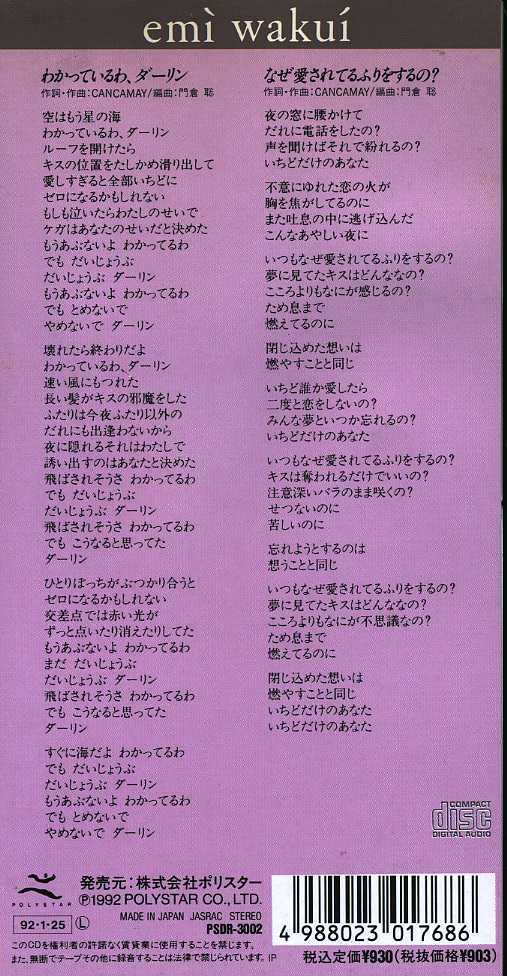 emi wakui
わかっているわ、ダーリン
作詞・作曲:CANCAMAY/編曲:門倉 聡
空はもう星の海
わかっているわ、ダーリン
ルーフを開けたら
キスの位置をたしかめ滑り出して
愛しすぎると全部いちどに
ゼロになるかもしれない
もしも泣いたらわたしのせいで
ケガはあなたのせいだと決めた
もうあぶないよ わかってるわ
でも だいじょうぶ
だいじょうぶ ダーリン
もうあぶないよ わかってるわ
でも とめないで
やめないで ダーリン
壊れたら終わりだよ
わかっているわ、ダーリン
速い風にもつれた
長い髪がキスの邪魔をした
ふたりは今夜ふたり以外の
だれにも出逢わないから
夜に隠れるそれはわたしで
誘い出すのはあなたと決めた
飛ばされそうさ わかってるわ
でも だいじょうぶ
だいじょうぶ ダーリン
飛ばされそうさ わかってるわ
でも こうなると思ってた
ダーリン
ひとりぼっちがぶつかり合うと
ゼロになるかもしれない
交差点では赤い光が
ずっと点いたり消えたりしてた
もうあぶないよ わかってるわ
まだ だいじょうぶ
だいじょうぶ ダーリン
飛ばされそうさ わかってるわ
でも こうなると思ってた
ダーリン
すぐに海だよ わかってるわ
でも だいじょうぶ
だいじょうぶ ダーリン
もうあぶないよ わかってるわ
でも とめないで
やめないで ダーリン
なぜ愛されてるふりをするの?
作詞・作曲:CANCAMAY/編曲:門倉 聡
夜の窓に腰かけて
だれに電話をしたの?
声を聞けばそれで紛れるの?
いちどだけのあなた
不意にゆれた恋の火が
胸を焦がしてるのに
また吐息の中に逃げ込んだ
こんなあやしい夜に
いつもなぜ愛されてるふりをするの?
夢に見てたキスはどんななの?
こころよりもなにが感じるの?
ため息まで
燃えてるのに
閉じ込めた想いは
燃やすことと同じ
いちど誰か愛したら
二度と恋をしないの?
みんな夢といつか忘れるの?
いちどだけのあなた
いつもなぜ愛されてるふりをするの?
キスは奪われるだけでいいの?
注意深いバラのまま咲くの?
せつないのに
苦しいのに
忘れようとするのは
想うことと同じ
いつもなぜ愛されてるふりをするの?
夢に見てたキスはどんななの?
こころよりもなにが不思議なの?
ため息まで
燃えてるのに
閉じ込めた想いは
燃やすことと同じ
いちどだけのあなた
いちどだけのあなた
COMPACT
disc
DIGITAL AUDIO
POLYSTAR
発売元:株式会社ポリスター
Ⓟ1992 POLYSTAR CO., LTD.
92・1・25 Ⓛ
MADE IN JAPAN JASRAC STEREO
PSDR-3002
このCDを権利者の許諾なく賃貸業に使用することを禁じます。
また、無断でテープその他に録音することは法律で禁じられています。 IP
4 988023 017686
税込定価¥930(税抜価格¥903)